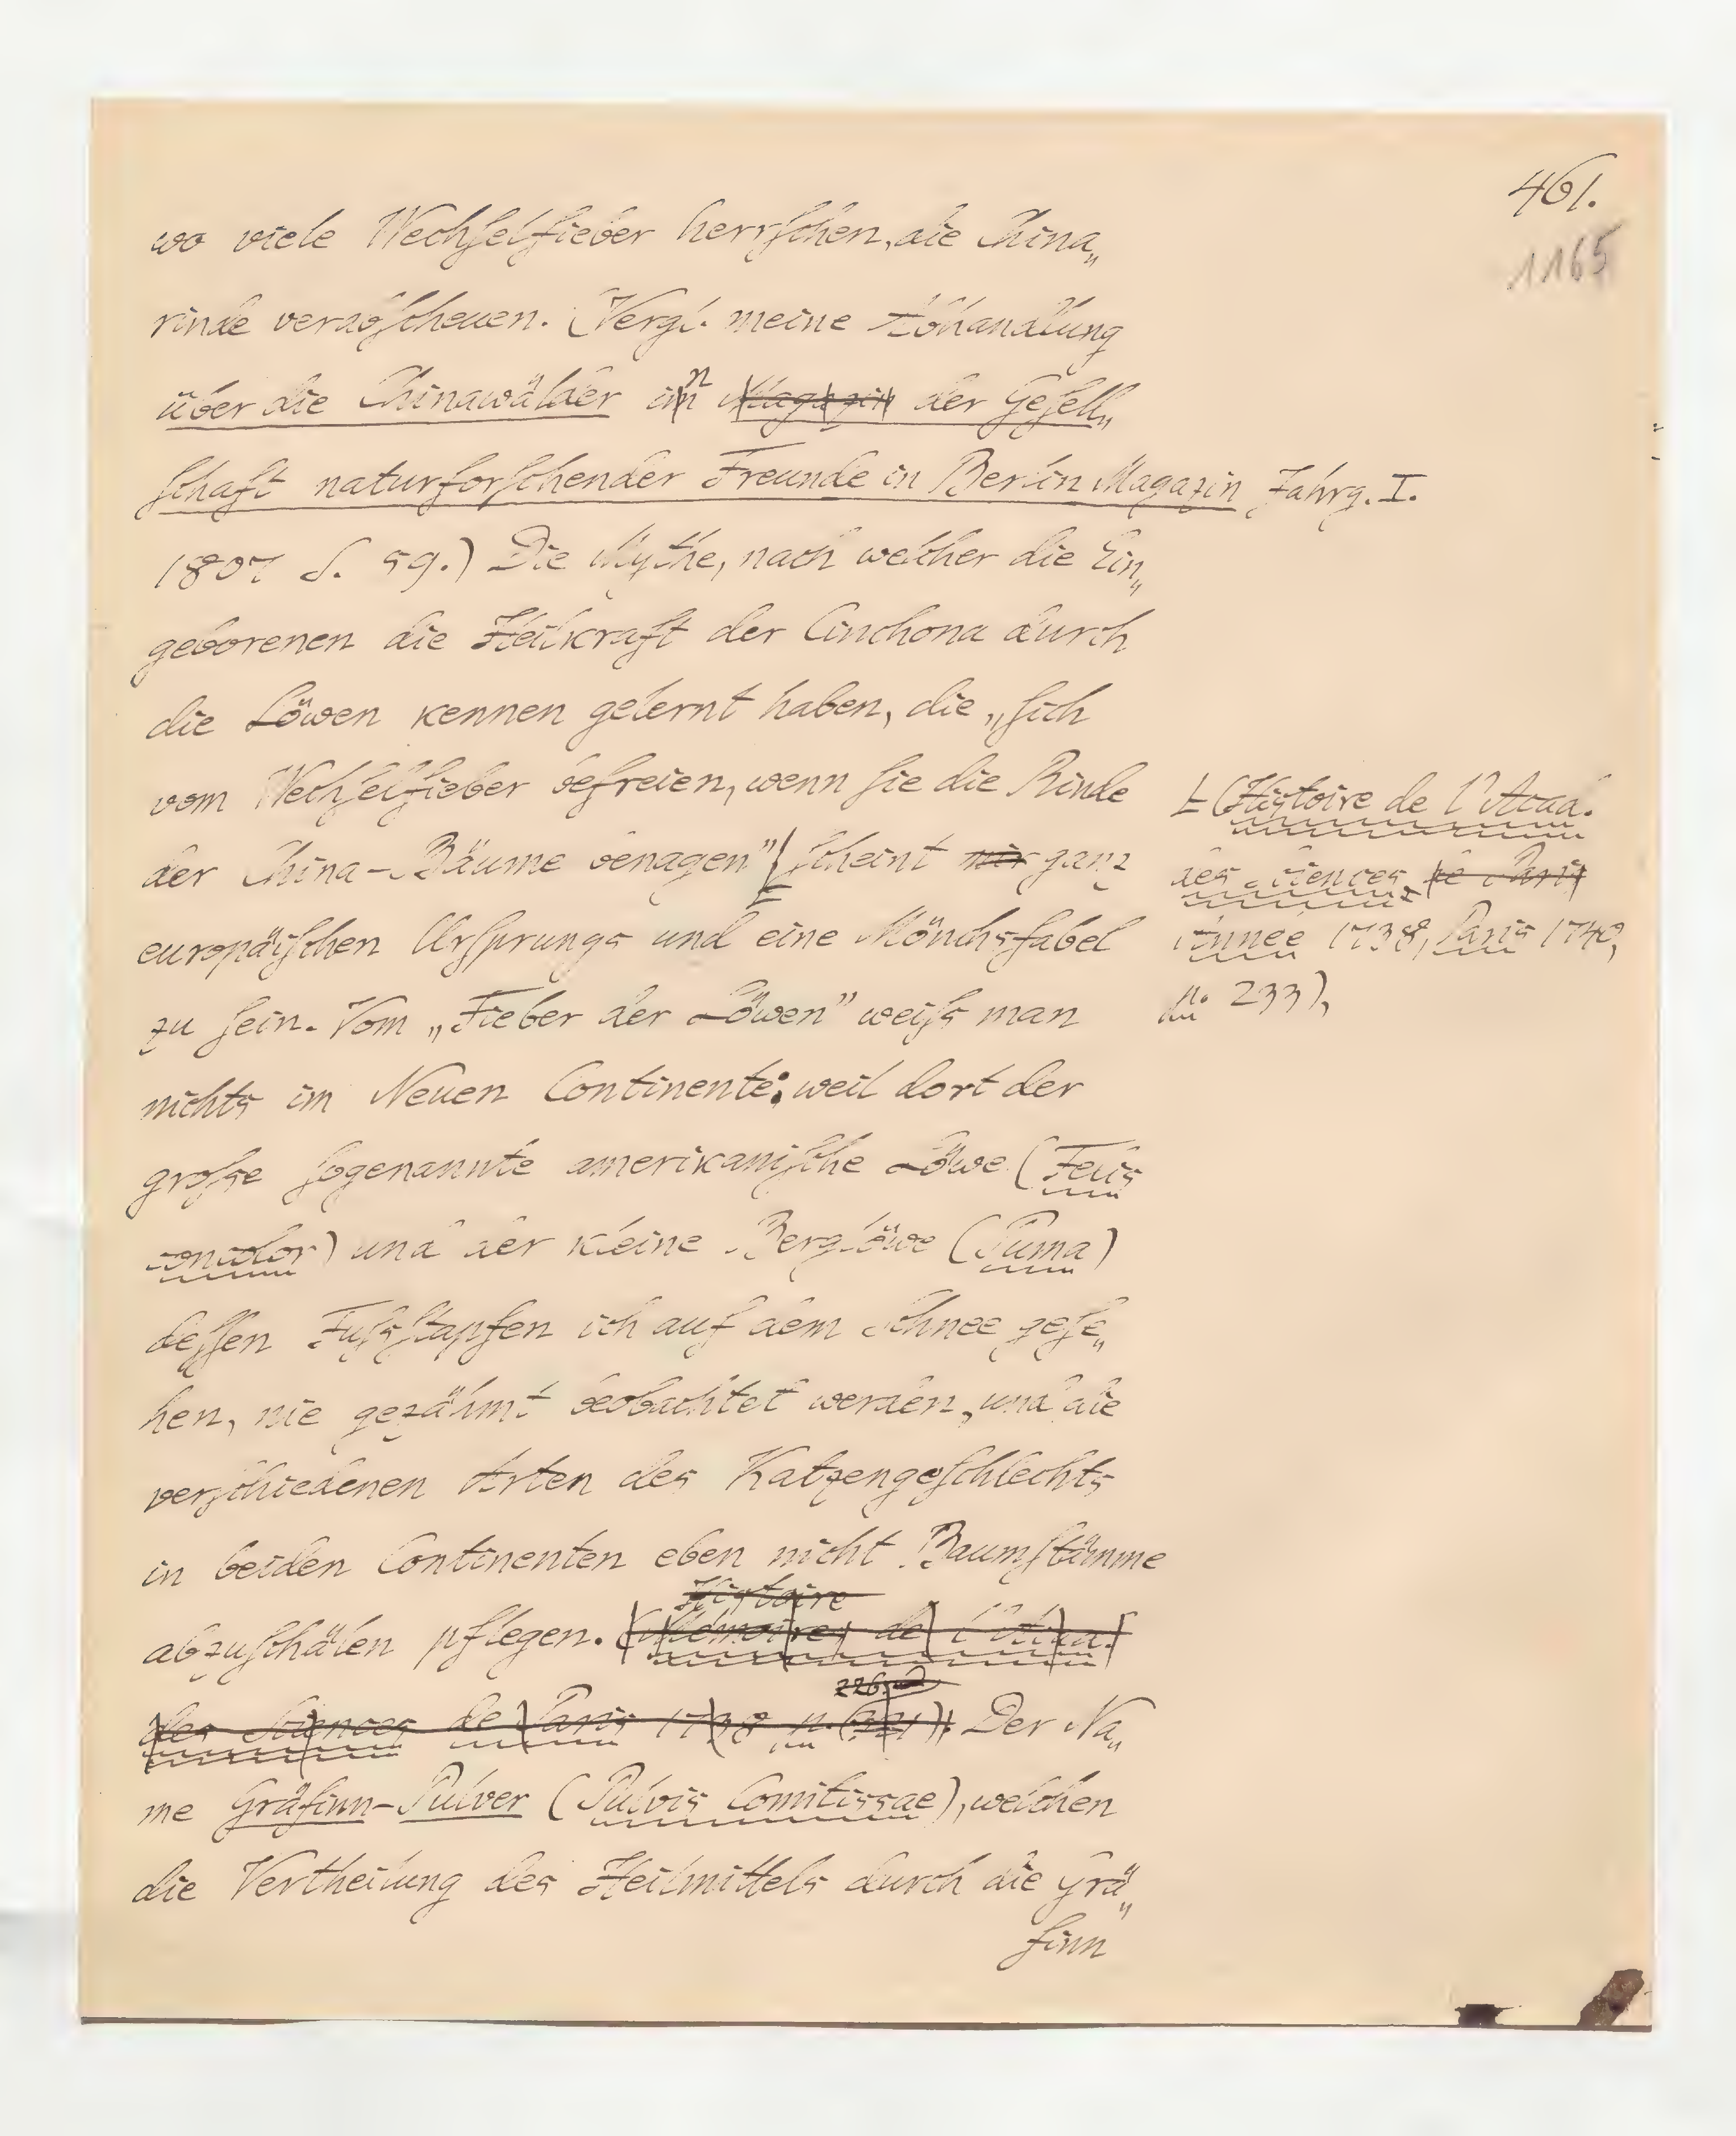 461.
1165
wo viele Wechselfieber herrschen, die China„
rinde verabscheuen. (Vergl. meine Abhandlung
über die Chinawälder in Magazin der Gesell„
schaft naturforschender Freunde in Berlin Magazin Jahrg. I.
1807 S. 59.) Die Mythe, nach welcher die Ein„
geborenen die Heilkraft der Cinchona durch
die Löwen kennen gelernt haben, die „sich
vom Wechselfieber befreien, wenn sie die Rinde
der China-Bäume benagen" scheint mir ganz
europäischen Ursprungs und eine Mönchsfabel
zu sein. Vom „Fieber der Löwen" weiss man
nichts im Neuen Continente: weil dort der
grosse sogenannte amerikanische Löwe (Felis
concolor) und der kleine Berglöwe (Puma)
dessen Fussstapfen ich auf dem Schnee gese„
hen, nie gezähmt beobachtet werden, und die
verschiedenen Arten des Katzengeschlechts
in beiden Continenten eben nicht Baumstämme
Histoire
abzuschälen pflegen. (Mémoires de l'Acad.
226.
des Sciences de Paris 1738 p. Der Na„
me Gräfinn-Pulver (Pulvis Comitissae), welchen
die Vertheilung des Heilmittels durch die Grä„
finn
(Histoire de l'Acad.
des Siences de Paris
Année 1738, Paris 1740,
p. 233),